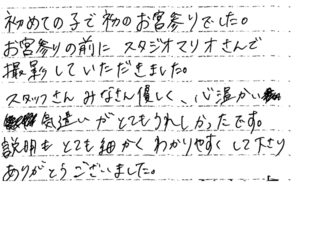 初めての子で初のお宮参りでした。
お宮参りの前に スタジオマリオさんで
撮影していただきました。
スタッフさん みなさん優しく、心温かい
気遣いがとてもうれしかったです。
説明も とても細かく わかりやすく して下さり
ありがとうございました。